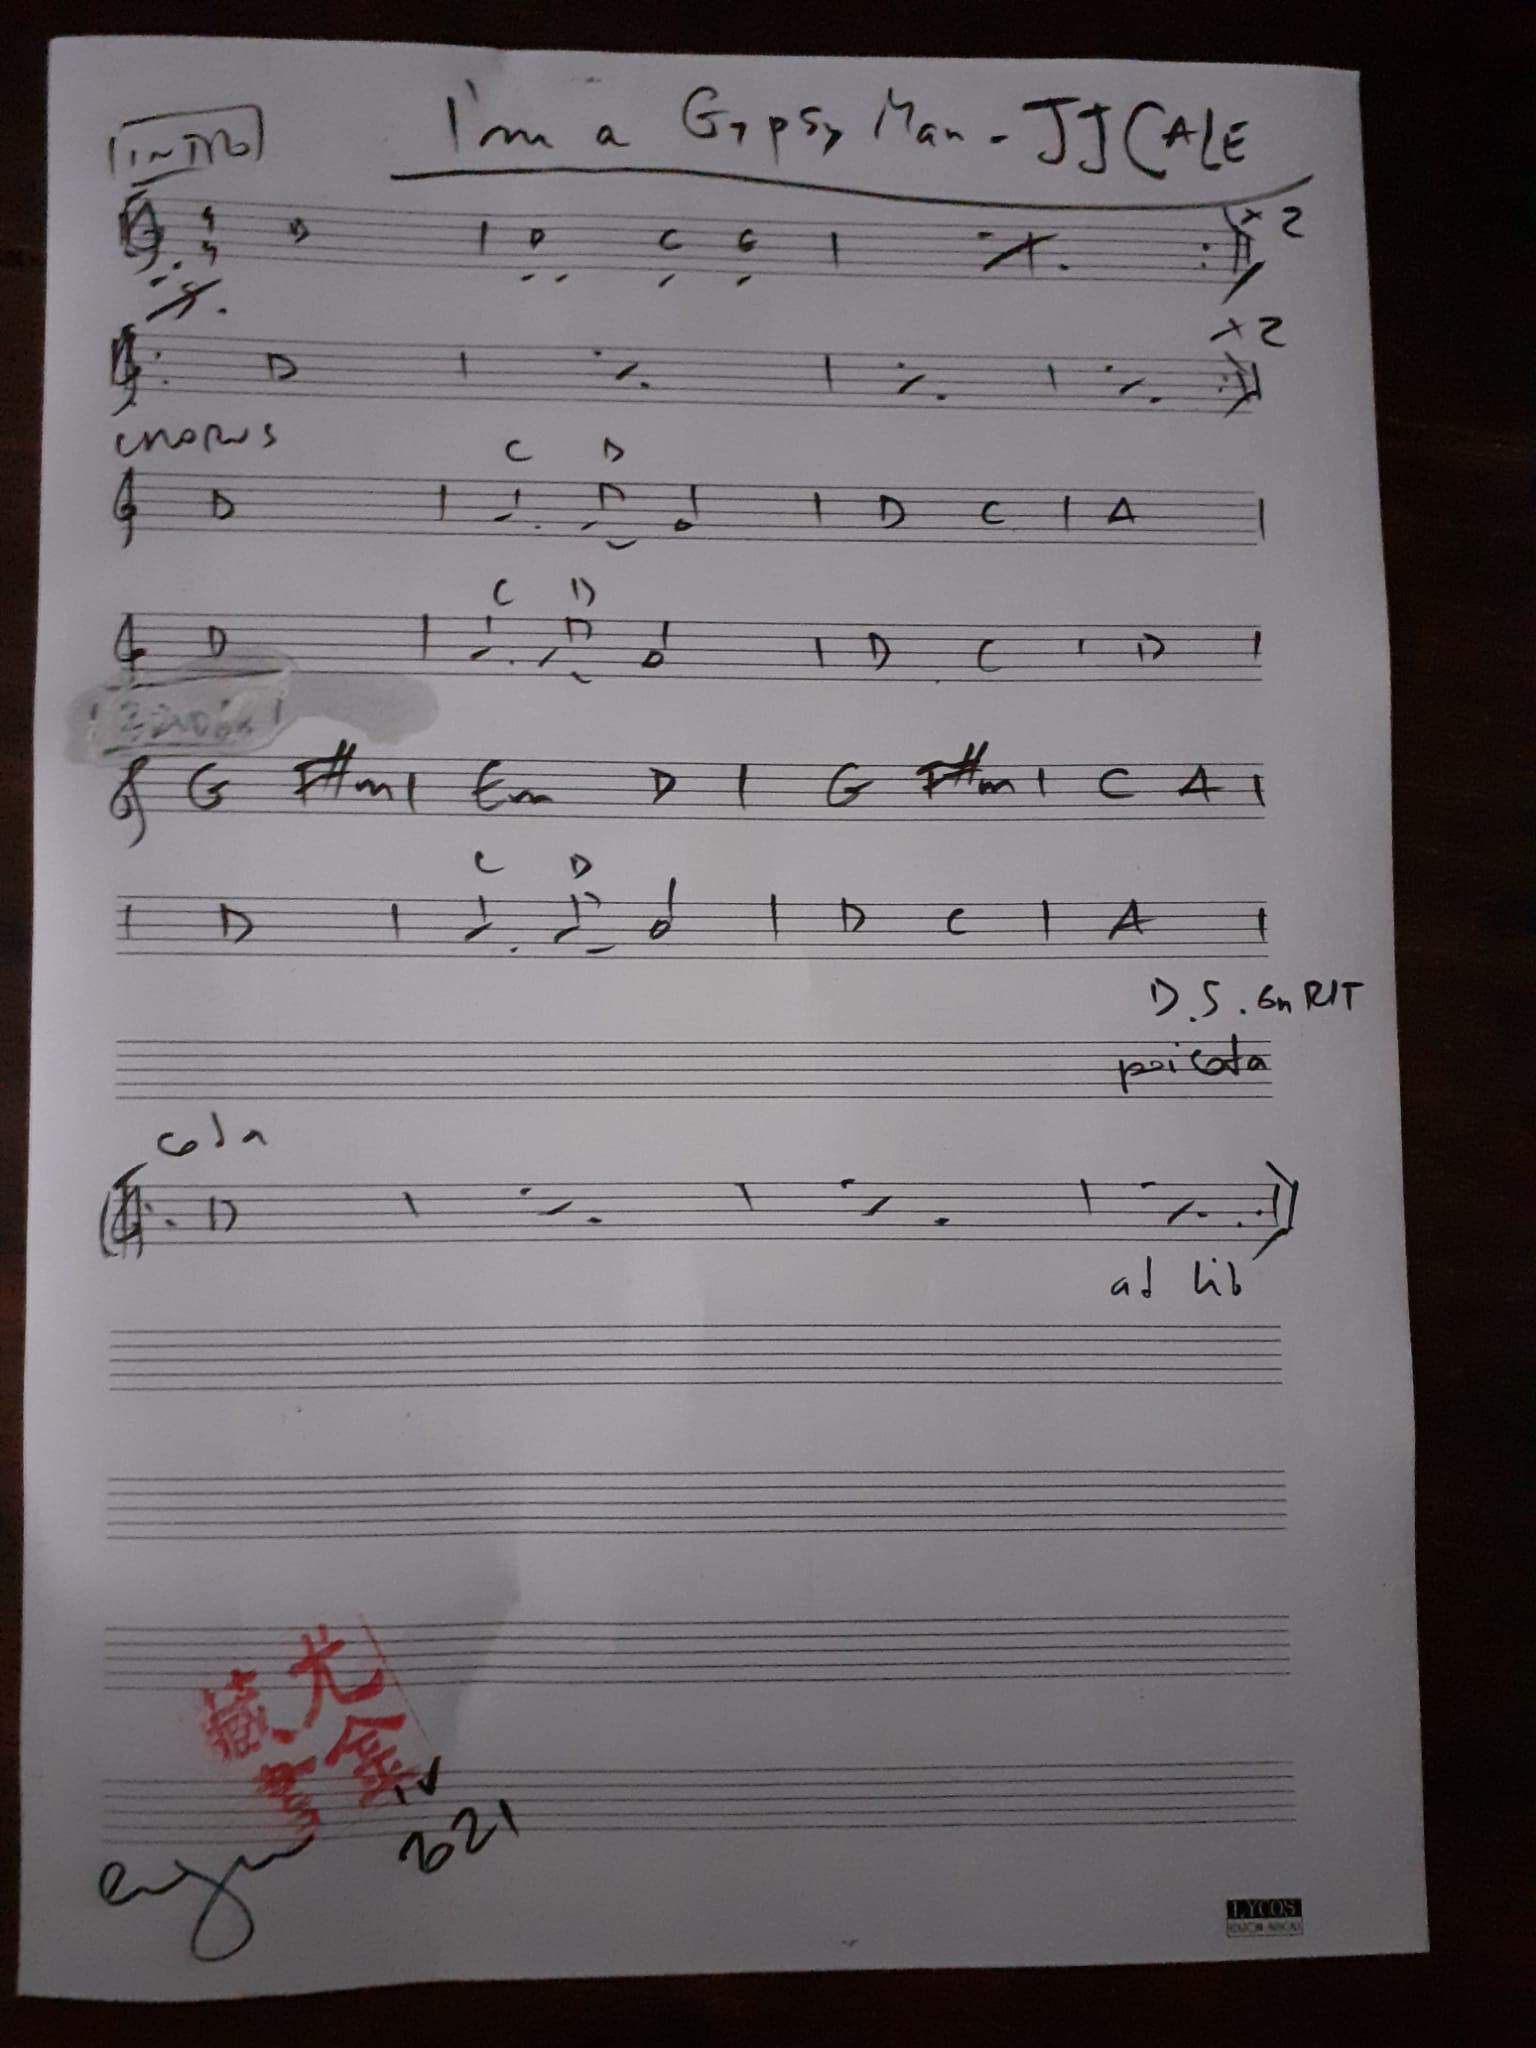 INTRO
I'm a Gypsy Man - JJ CALE
4 4 D | D C G | x 2
D | x 2
CHORUS
C D
D | | D C | A |
C D
D | | D C | D |
G F#m | Em D | G F#m | C A |
C D
| D | | D C | A |
D.S. con RIT
poi coda
coda
D
ad lib
尤金
藏書
IV
2021
LYCOS